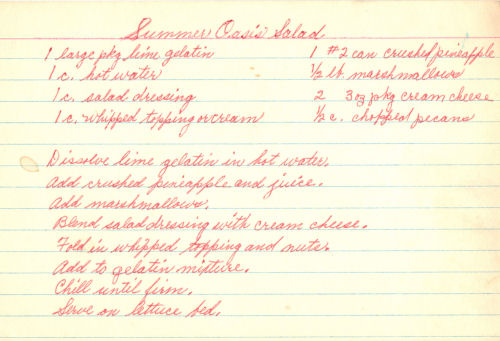 Summer Oasis Salad
1 large pkg lime gelatin
1 #2 can crushed pineapple
1 c. hot water
1/2 lb. marshmallows
1 c. salad dressing
2 3oz pkg cream cheese
1 c. whipped topping or cream
1/2 c. chopped pecans
Dissolve lime gelatin in hot water.
Add crushed pineapple and juice.
Add marshmallows.
Blend salad dressing with cream cheese.
Fold in whipped topping and nuts.
Add to gelatin mixture.
Chill until firm.
Serve on lettuce bed.